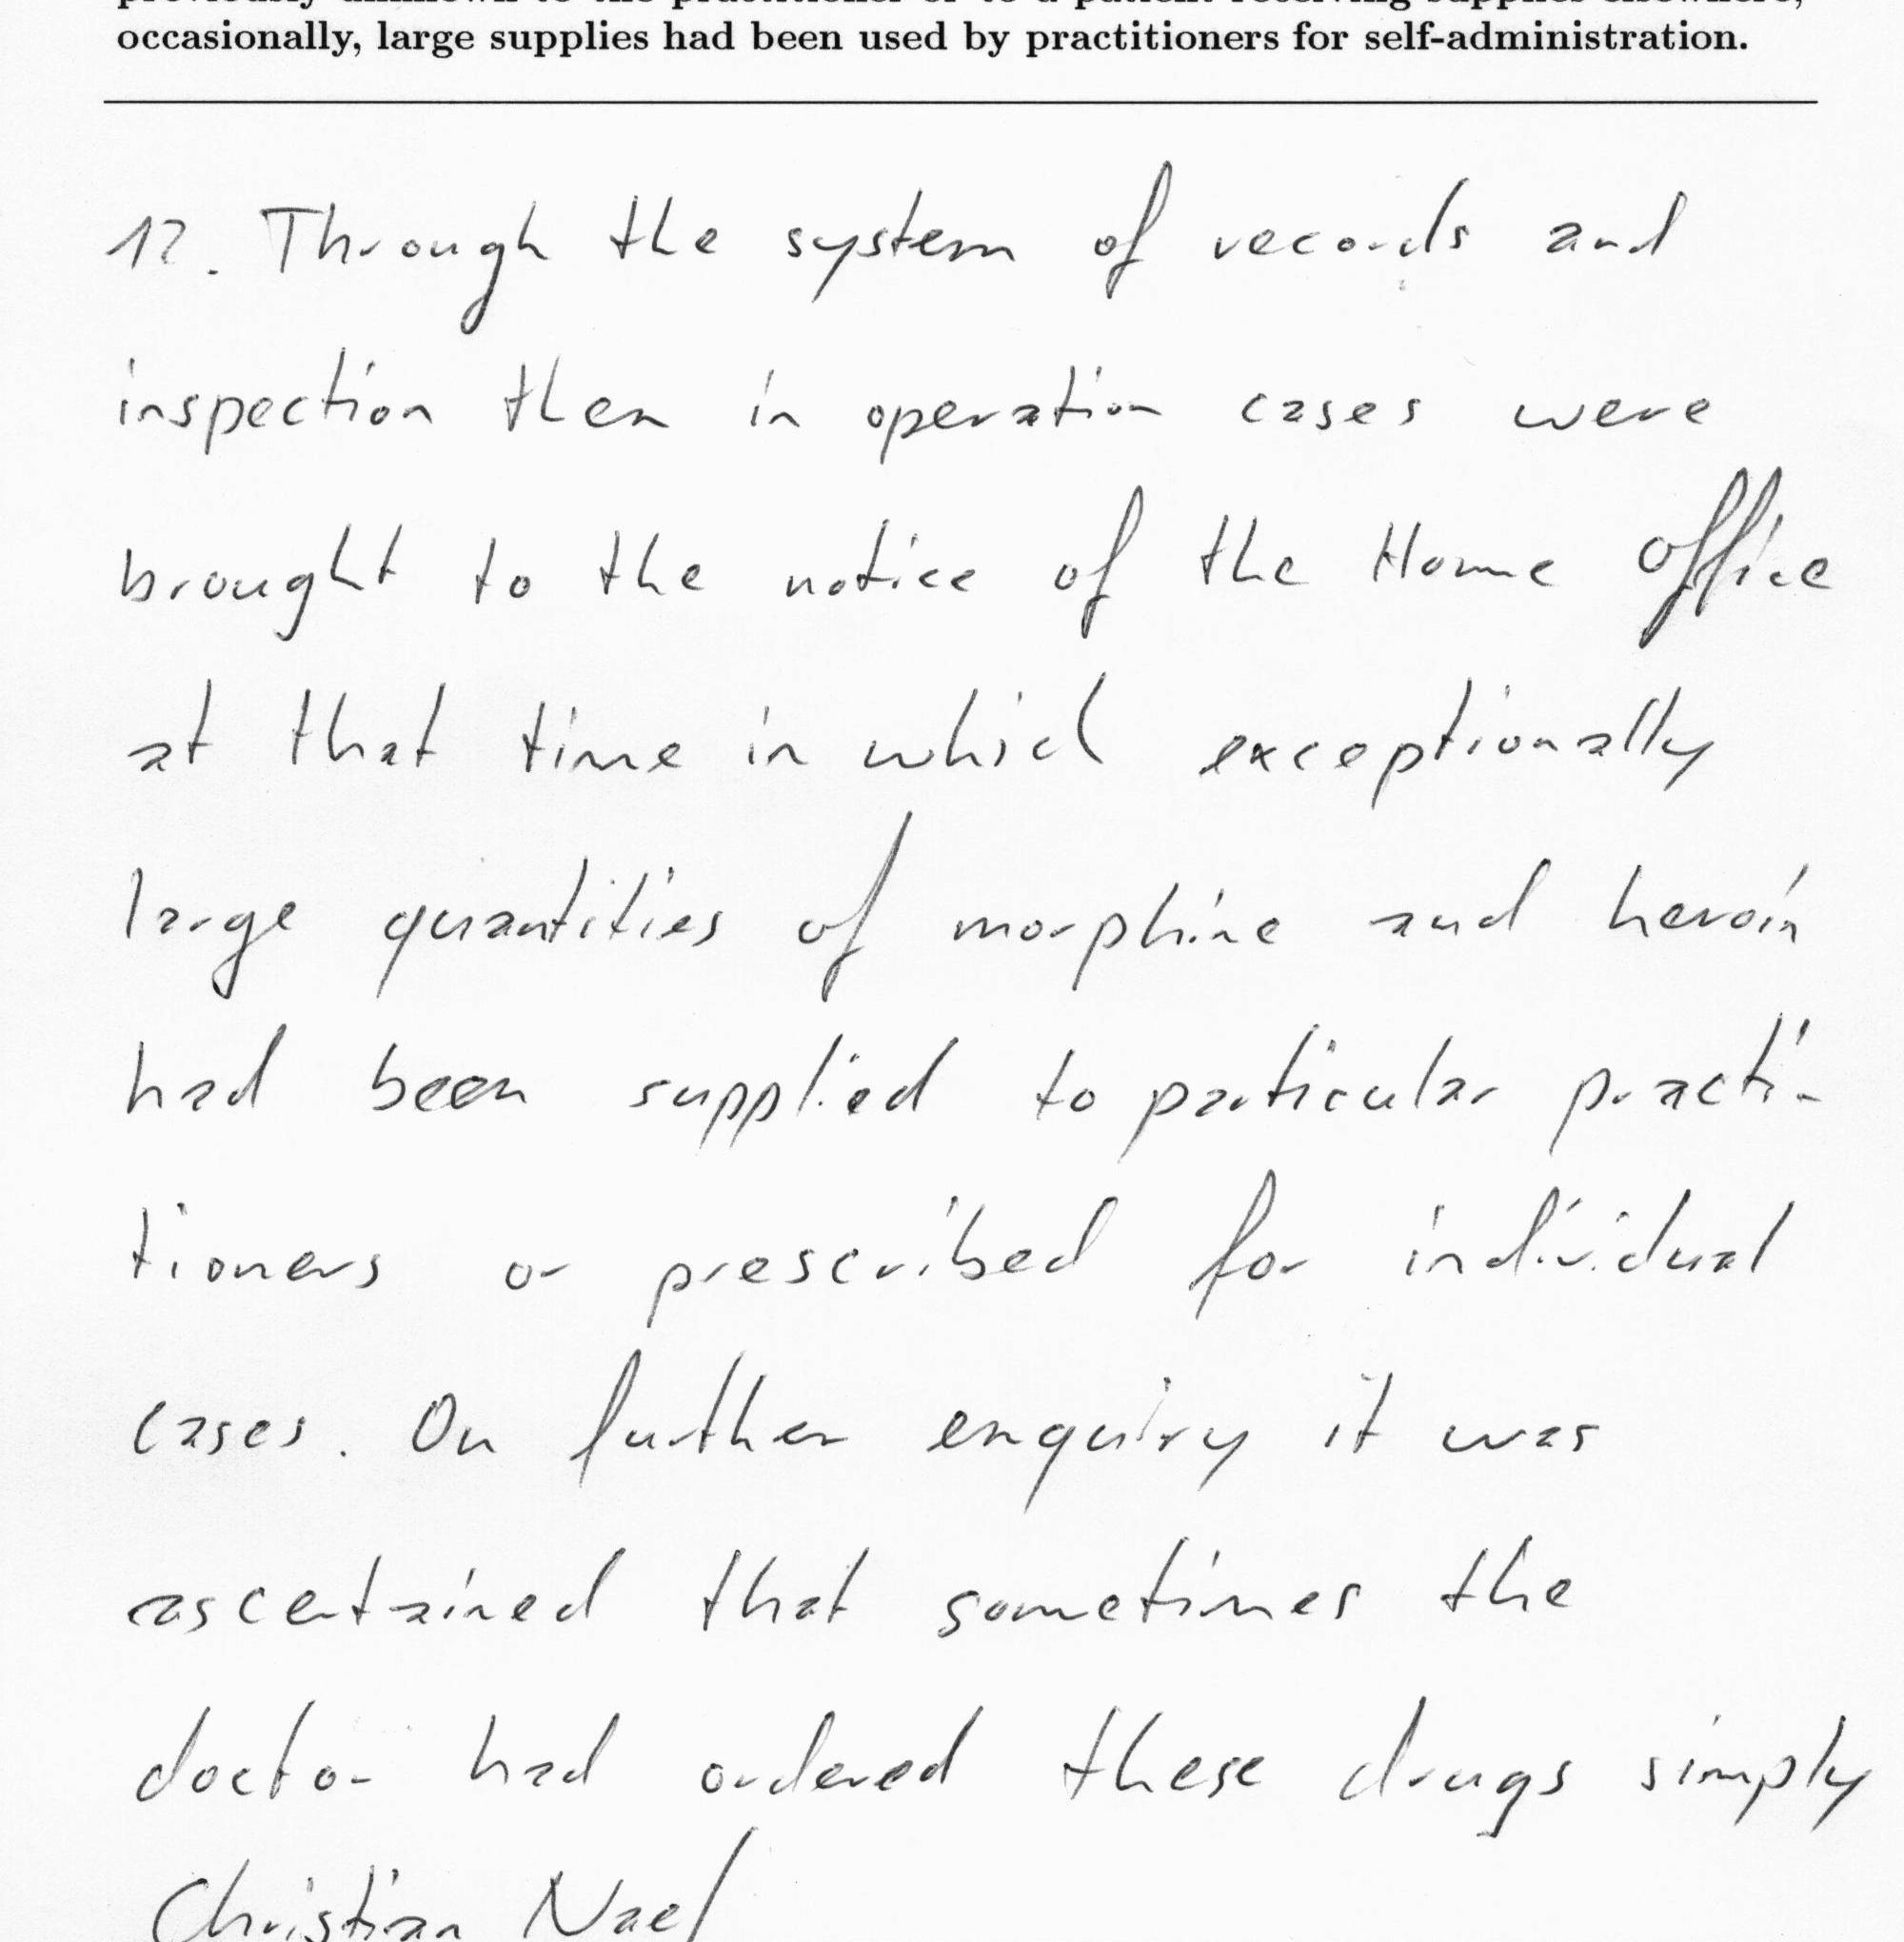 previously unknown to the practitioner or to a patient receiving supplies elsewhere;
occasionally, large supplies had been used by practitioners for self-administration.
12. Through the system of records and
inspection then in operation cases were
brought to the notice of the Home Office
at that time in which exceptionally
large quantities of morphine and heroin
had been supplied to particular practi-
tioners or prescribed for individual
cases. On further enquiry it was
ascertained that sometimes the
doctor had ordered these drugs simply
Christian Nael